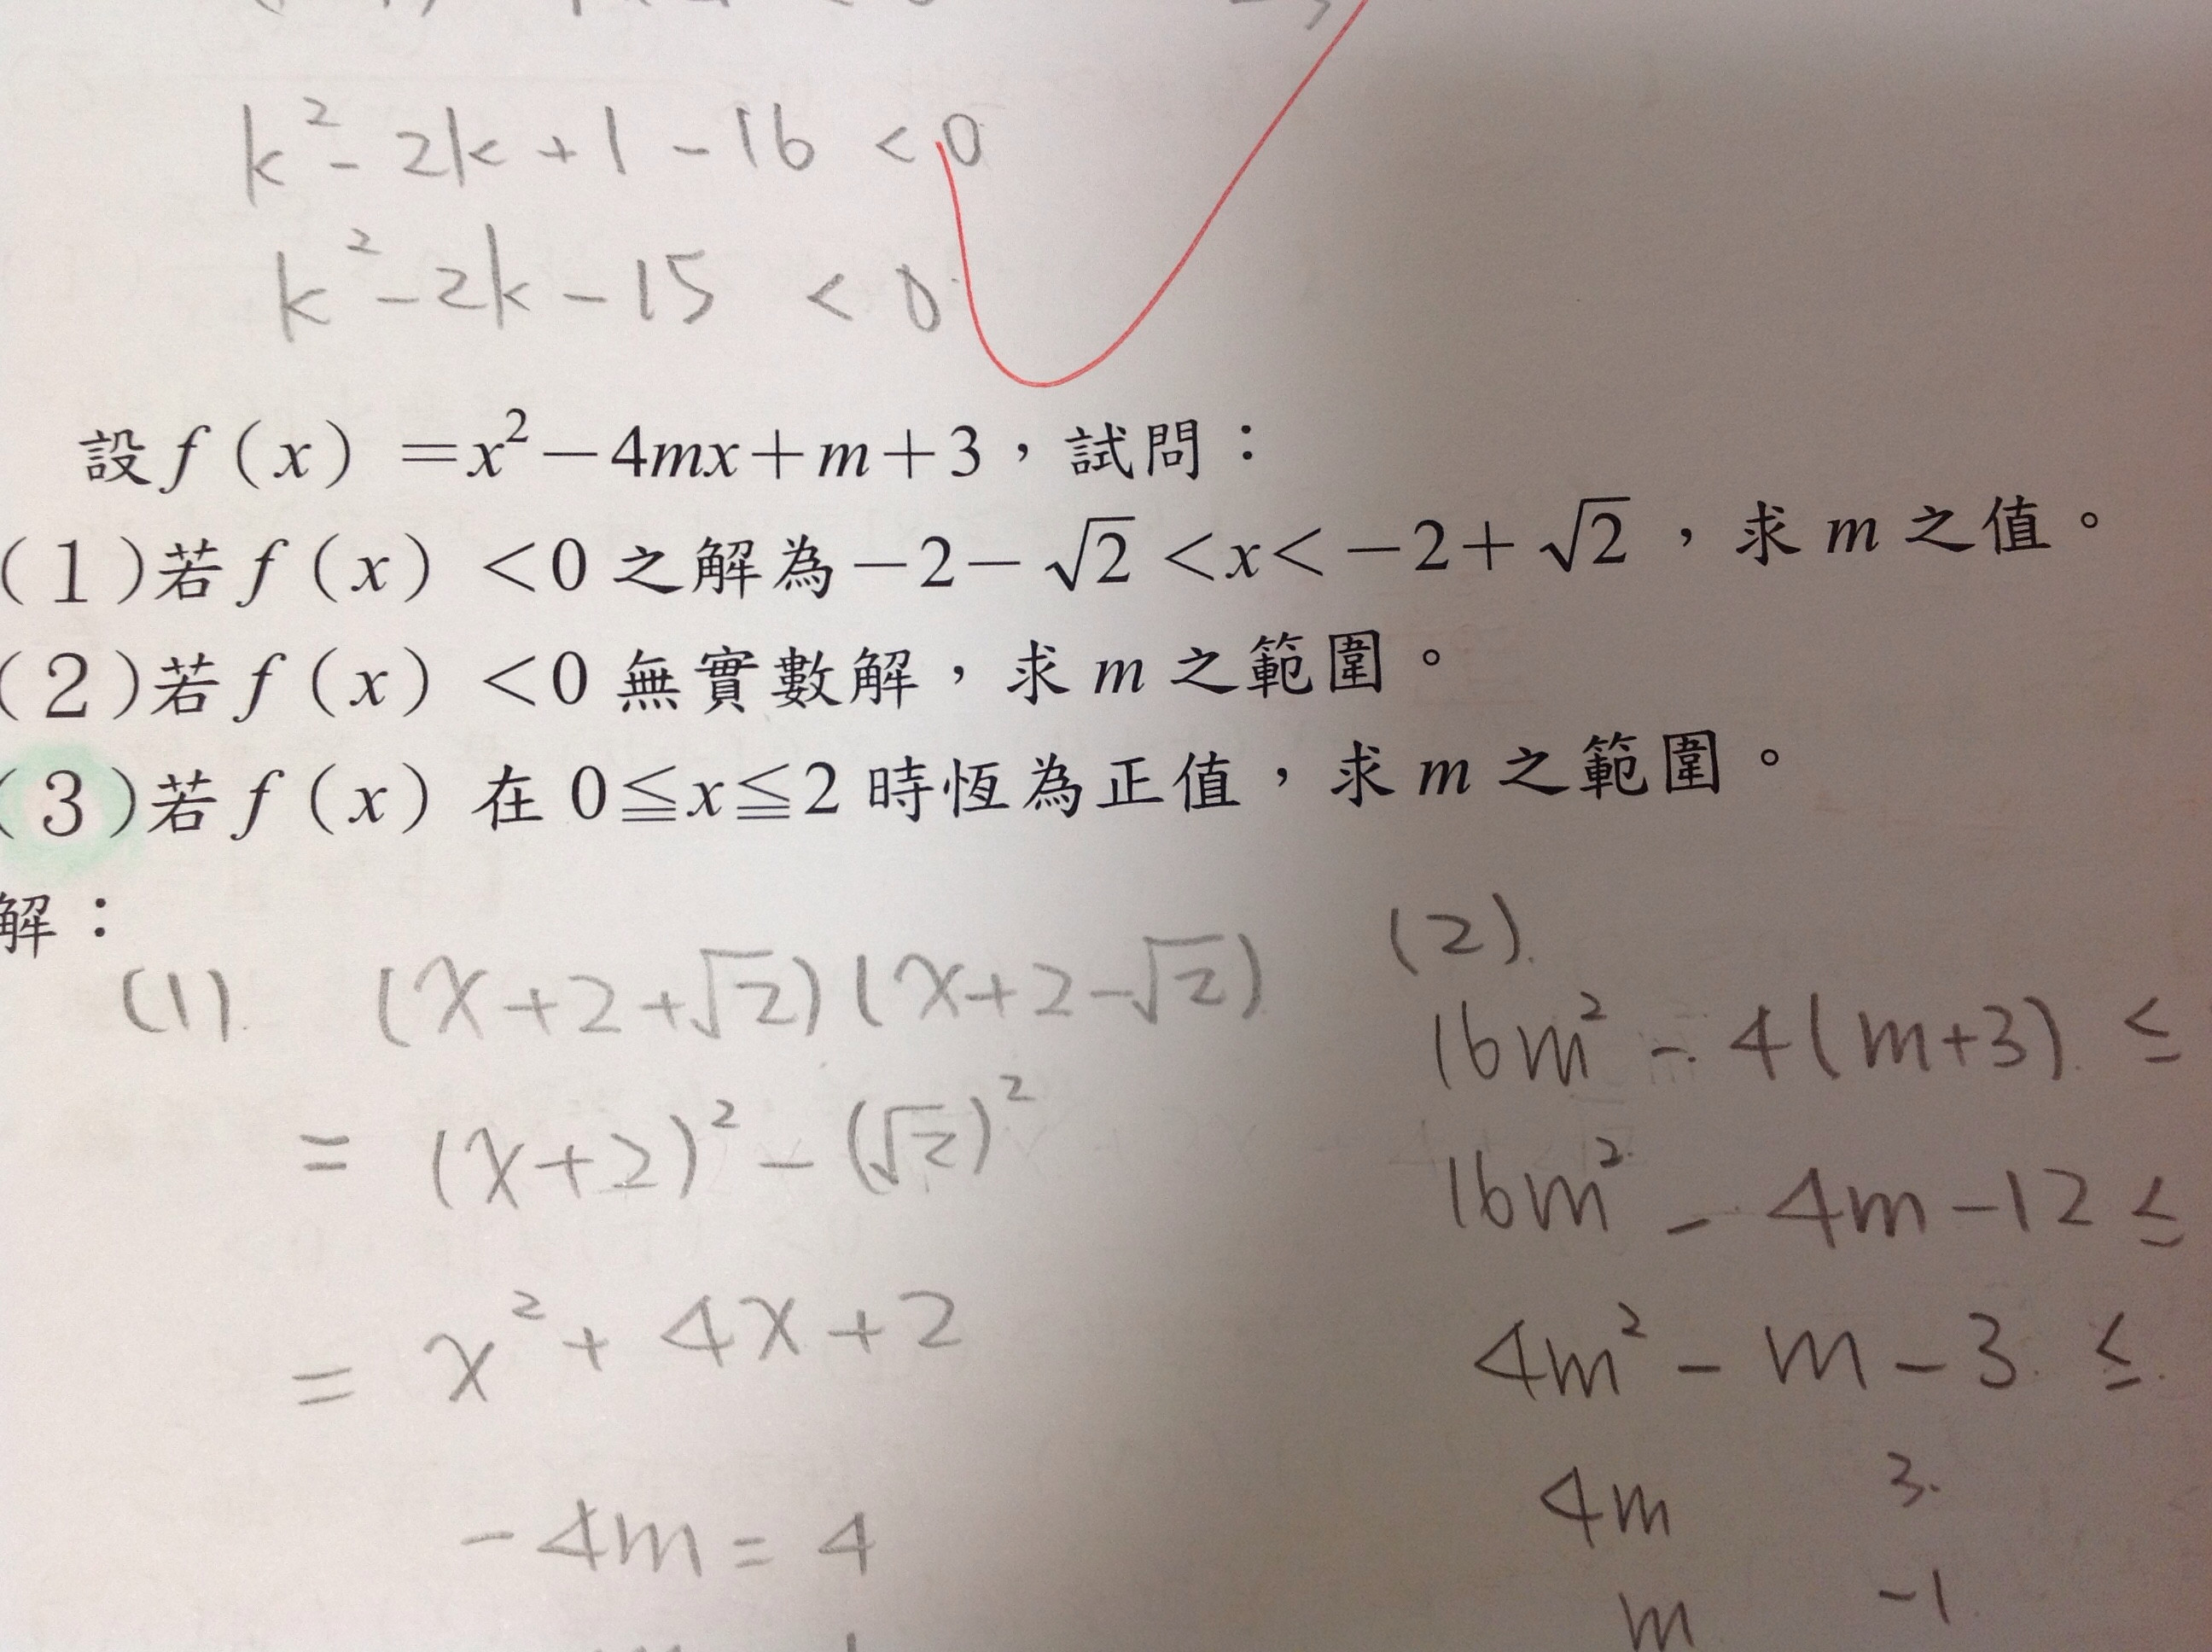 k² - 2k + 1 - 16 < 0
k² - 2k - 15 < 0
設 f(x) =x²-4mx+m+3,試問:
(1)若 f(x) <0 之解為-2-√2 <x<-2+√2 ,求 m 之值。
(2)若 f(x) <0 無實數解,求 m 之範圍。
(3)若 f(x) 在 0≦x≦2 時恆為正值,求 m 之範圍。
解:
(1) (x+2+√2)(x+2-√2)
= (x+2)² - (√2)²
= x² + 4x + 2
-4m = 4
(2).
16m² - 4(m+3) ≤
16m² - 4m - 12 ≤
4m² - m - 3 ≤
4m 3
m -1